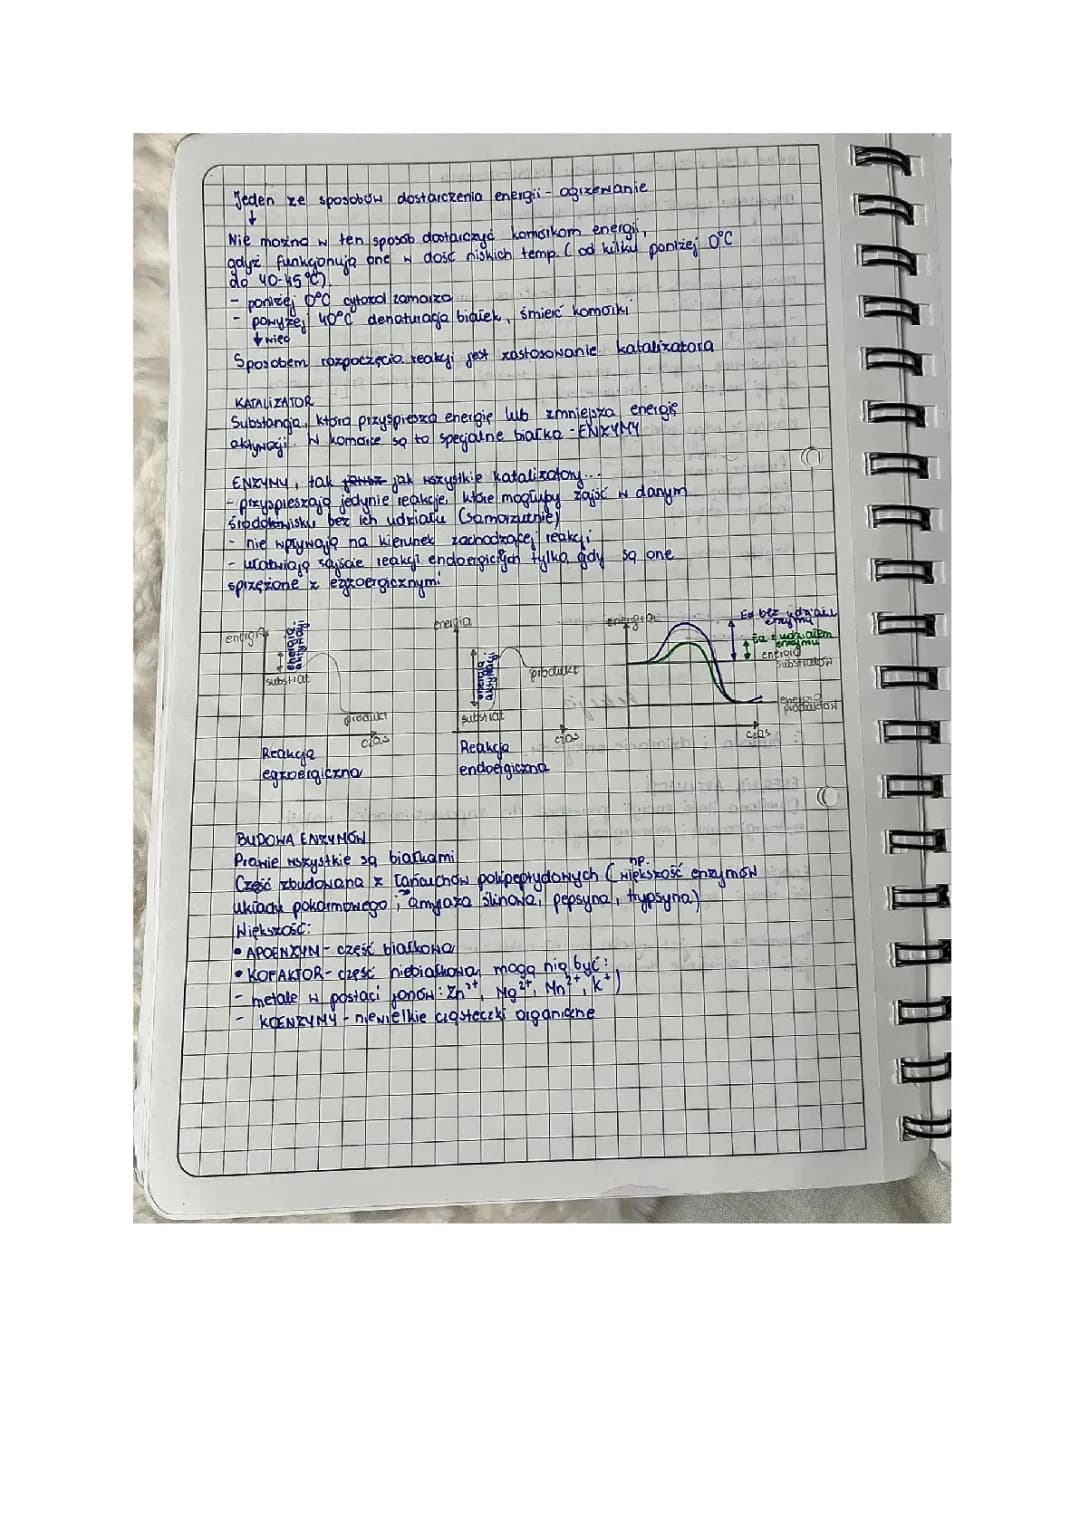 Jeden ze sposobów dostarczenia energii - ogrzewanie
Nie można w ten sposób dostarczyć komórkom energii,
gdyż funkcjonują one w dość niskich temp. (od kilku poniżej 0°C
do 40-45°C).
- poniżej 0°C cytozol zamarza
- powyżej 40°C denaturacja białek, śmierć komórki
więc
Sposobem rozpoczęcia reakcji jest zastosowanie katalizatora
KATALIZATOR
Substancja, która przyspiesza energię lub zmniejsza energię
aktywacji. W komórce są to specjalne białka - ENZYMY
ENZYMY, tak jak wszystkie katalizatory...
- przyspieszają jedynie reakcje, które mogłyby zajść w danym
środowisku bez ich udziału (samorzutnie)
- nie wpływają na kierunek zachodzącej reakcji
- ułatwiają zajście reakcji endoergicznych tylko gdy są one
sprzężone z egzoergicznymi
energia
energia aktywacji
substrat
produkt
czas
Reakcja
egzoergiczna
energia
energia aktywacji
produkt
substrat
czas
Reakcja
endoergiczna
energia
Ea bez udziału
enzymu
Ea z udziałem
enzymu
energia
substratów
energia
produktów
czas
BUDOWA ENZYMÓW
Prawie wszystkie są białkami
Część zbudowana z łańcuchów polipeptydowych (np. większość enzymów
układu pokarmowego; amylaza ślinowa, pepsyna, trypsyna)
Większość:
• APOENZYM - część białkowa
• KOFAKTOR - część niebiałkowa, mogą nią być:
- metale w postaci jonów: Zn²⁺, Mg²⁺, Mn²⁺, K⁺)
- KOENZYMY - niewielkie cząsteczki organiczne